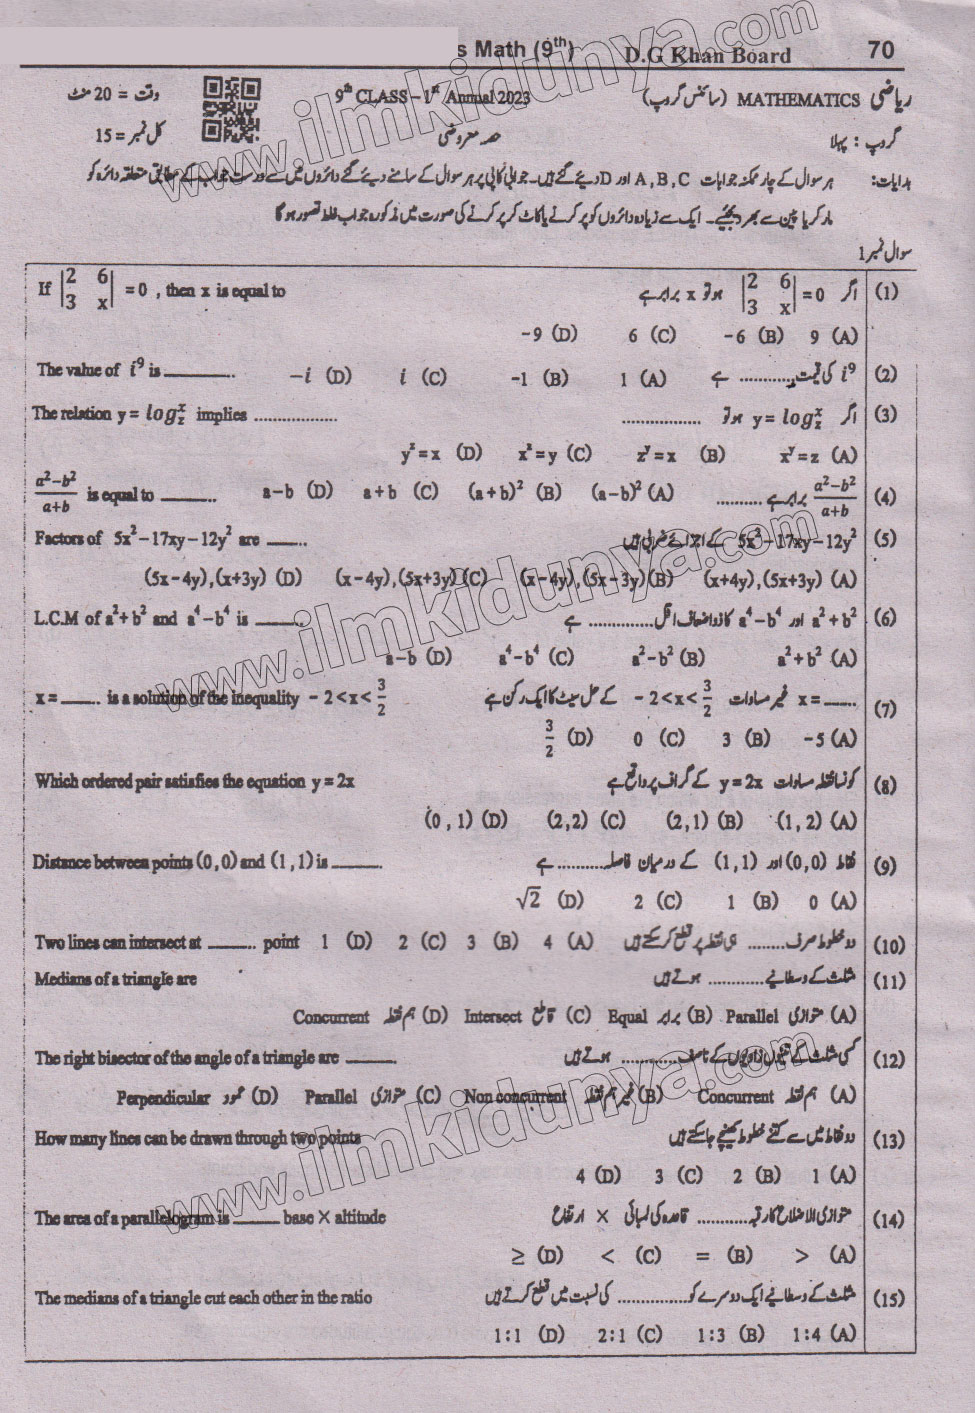 s Math (9th) D.G Khan Board 70
ریاضی MATHEMATICS (سائنس گروپ) 9th CLASS – 1st Annual 2023 وقت = 20 منٹ
گروپ : پہلا حصہ معروضی کل نمبر = 15
ہدایات: ہر سوال کے چار ممکنہ جوابات A , B , C اور D دیئے گئے ہیں۔ جوابی کاپی پر ہر سوال کے سامنے دیئے گئے دائروں میں سے درست جواب کے مطابق متعلقہ دائرہ کو
مارکر یا پین سے بھر دیجئیے۔ ایک سے زیادہ دائروں کو پر کرنے یا کاٹ کر پر کرنے کی صورت میں مذکورہ جواب غلط تصور ہوگا
سوال نمبر 1
(1) اگر |2 6; 3 x| = 0 ہو تو x برابر ہے If |2 6; 3 x| = 0 , then x is equal to
(A) 9 (B) -6 (C) 6 (D) -9
(2) i⁹ کی قیمت ............ ہے (A) 1 (B) -1 (C) i (D) -i The value of i⁹ is ............
(3) اگر y = log_z^x ہو تو ................ The relation y = log_z^x implies ................
(A) xʸ = z (B) zʸ = x (C) xᶻ = y (D) yᶻ = x
(4) (a²−b²)/(a+b) برابر ہے .......... (A) (a−b)² (B) (a+b)² (C) a+b (D) a−b (a²−b²)/(a+b) is equal to ..........
(5) 5x²−17xy−12y² کے اجزائے ضربی ہیں Factors of 5x²−17xy−12y² are ........
(A) (x+4y),(5x+3y) (B) (x−4y),(5x−3y) (C) (x−4y),(5x+3y) (D) (5x−4y),(x+3y)
(6) a²+b² اور a⁴−b⁴ کا ذواضعاف اقل ............. ہے L.C.M of a²+b² and a⁴−b⁴ is .........
(A) a²+b² (B) a²−b² (C) a⁴−b⁴ (D) a−b
(7) x = ....... غیر مساوات −2<x<3/2 کے حل سیٹ کا ایک رکن ہے x = ....... is a solution of the inequality −2<x<3/2
(A) −5 (B) 3 (C) 0 (D) 3/2
(8) کونسا نقطہ مساوات y = 2x کے گراف پر واقع ہے Which ordered pair satisfies the equation y = 2x
(A) (1,2) (B) (2,1) (C) (2,2) (D) (0,1)
(9) نقاط (0,0) اور (1,1) کے درمیان فاصلہ .......... ہے Distance between points (0,0) and (1,1) is ..........
(A) 0 (B) 1 (C) 2 (D) √2
(10) دو خطوط صرف ........ ہی نقطہ پر قطع کر سکتے ہیں (A) 4 (B) 3 (C) 2 (D) 1 Two lines can intersect at ......... point
(11) مثلث کے وسطانیے ............ ہوتے ہیں Medians of a triangle are
(A) متوازی Parallel (B) برابر Equal (C) قاطع Intersect (D) ہم نقطہ Concurrent
(12) کسی مثلث کے تینوں زاویوں کے ناصف ............ ہوتے ہیں The right bisector of the angle of a triangle are ..........
(A) ہم نقطہ Concurrent (B) غیر ہم نقطہ Non concurrent (C) متوازی Parallel (D) عمود Perpendicular
(13) دو نقاط میں سے کتنے خطوط کھینچے جا سکتے ہیں How many lines can be drawn through two points
(A) 1 (B) 2 (C) 3 (D) 4
(14) متوازی الاضلاع کا رقبہ .......... قاعدہ کی لمبائی × ارتفاع The area of a parallelogram is ......... base × altitude
(A) > (B) = (C) < (D) ≥
(15) مثلث کے وسطانیے ایک دوسرے کو ............. کی نسبت میں قطع کرتے ہیں The medians of a triangle cut each other in the ratio
(A) 1:4 (B) 1:3 (C) 2:1 (D) 1:1
www.ilmkidunya.com
www.ilmkidunya.com
www.ilmkidunya.com